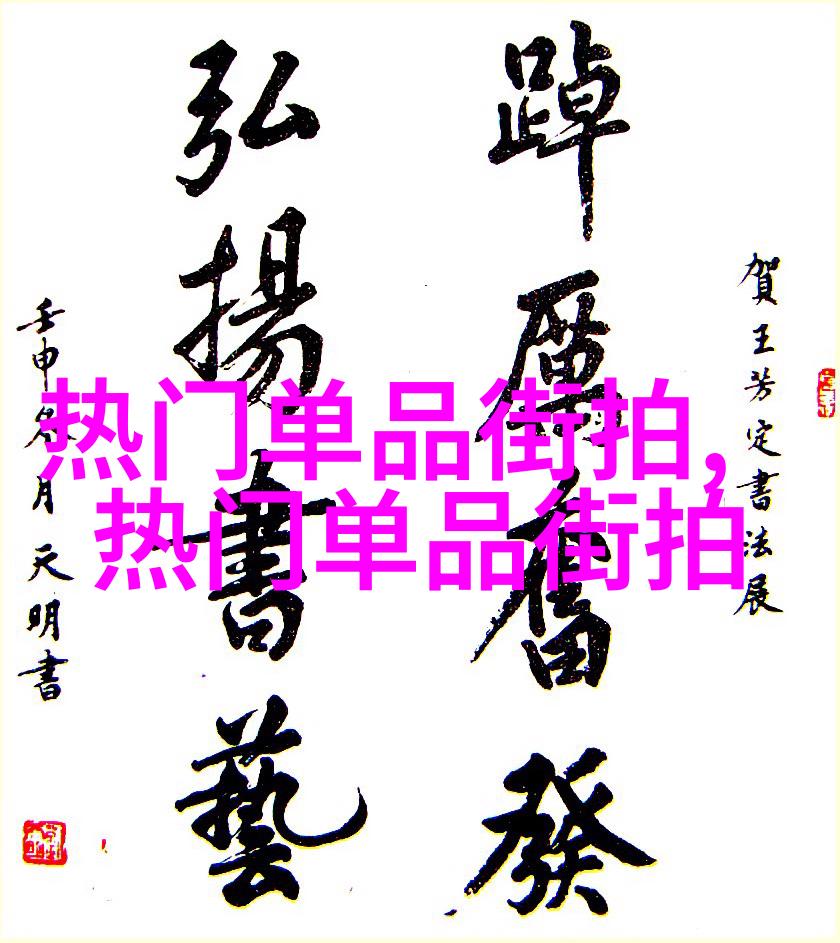 賀王芳定書法展
踔厲奮發
弘揚書藝
壬申 月天明書
热门单品街拍,
热门单品街拍